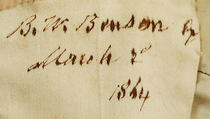 B. W. Benson
March 2d
1864